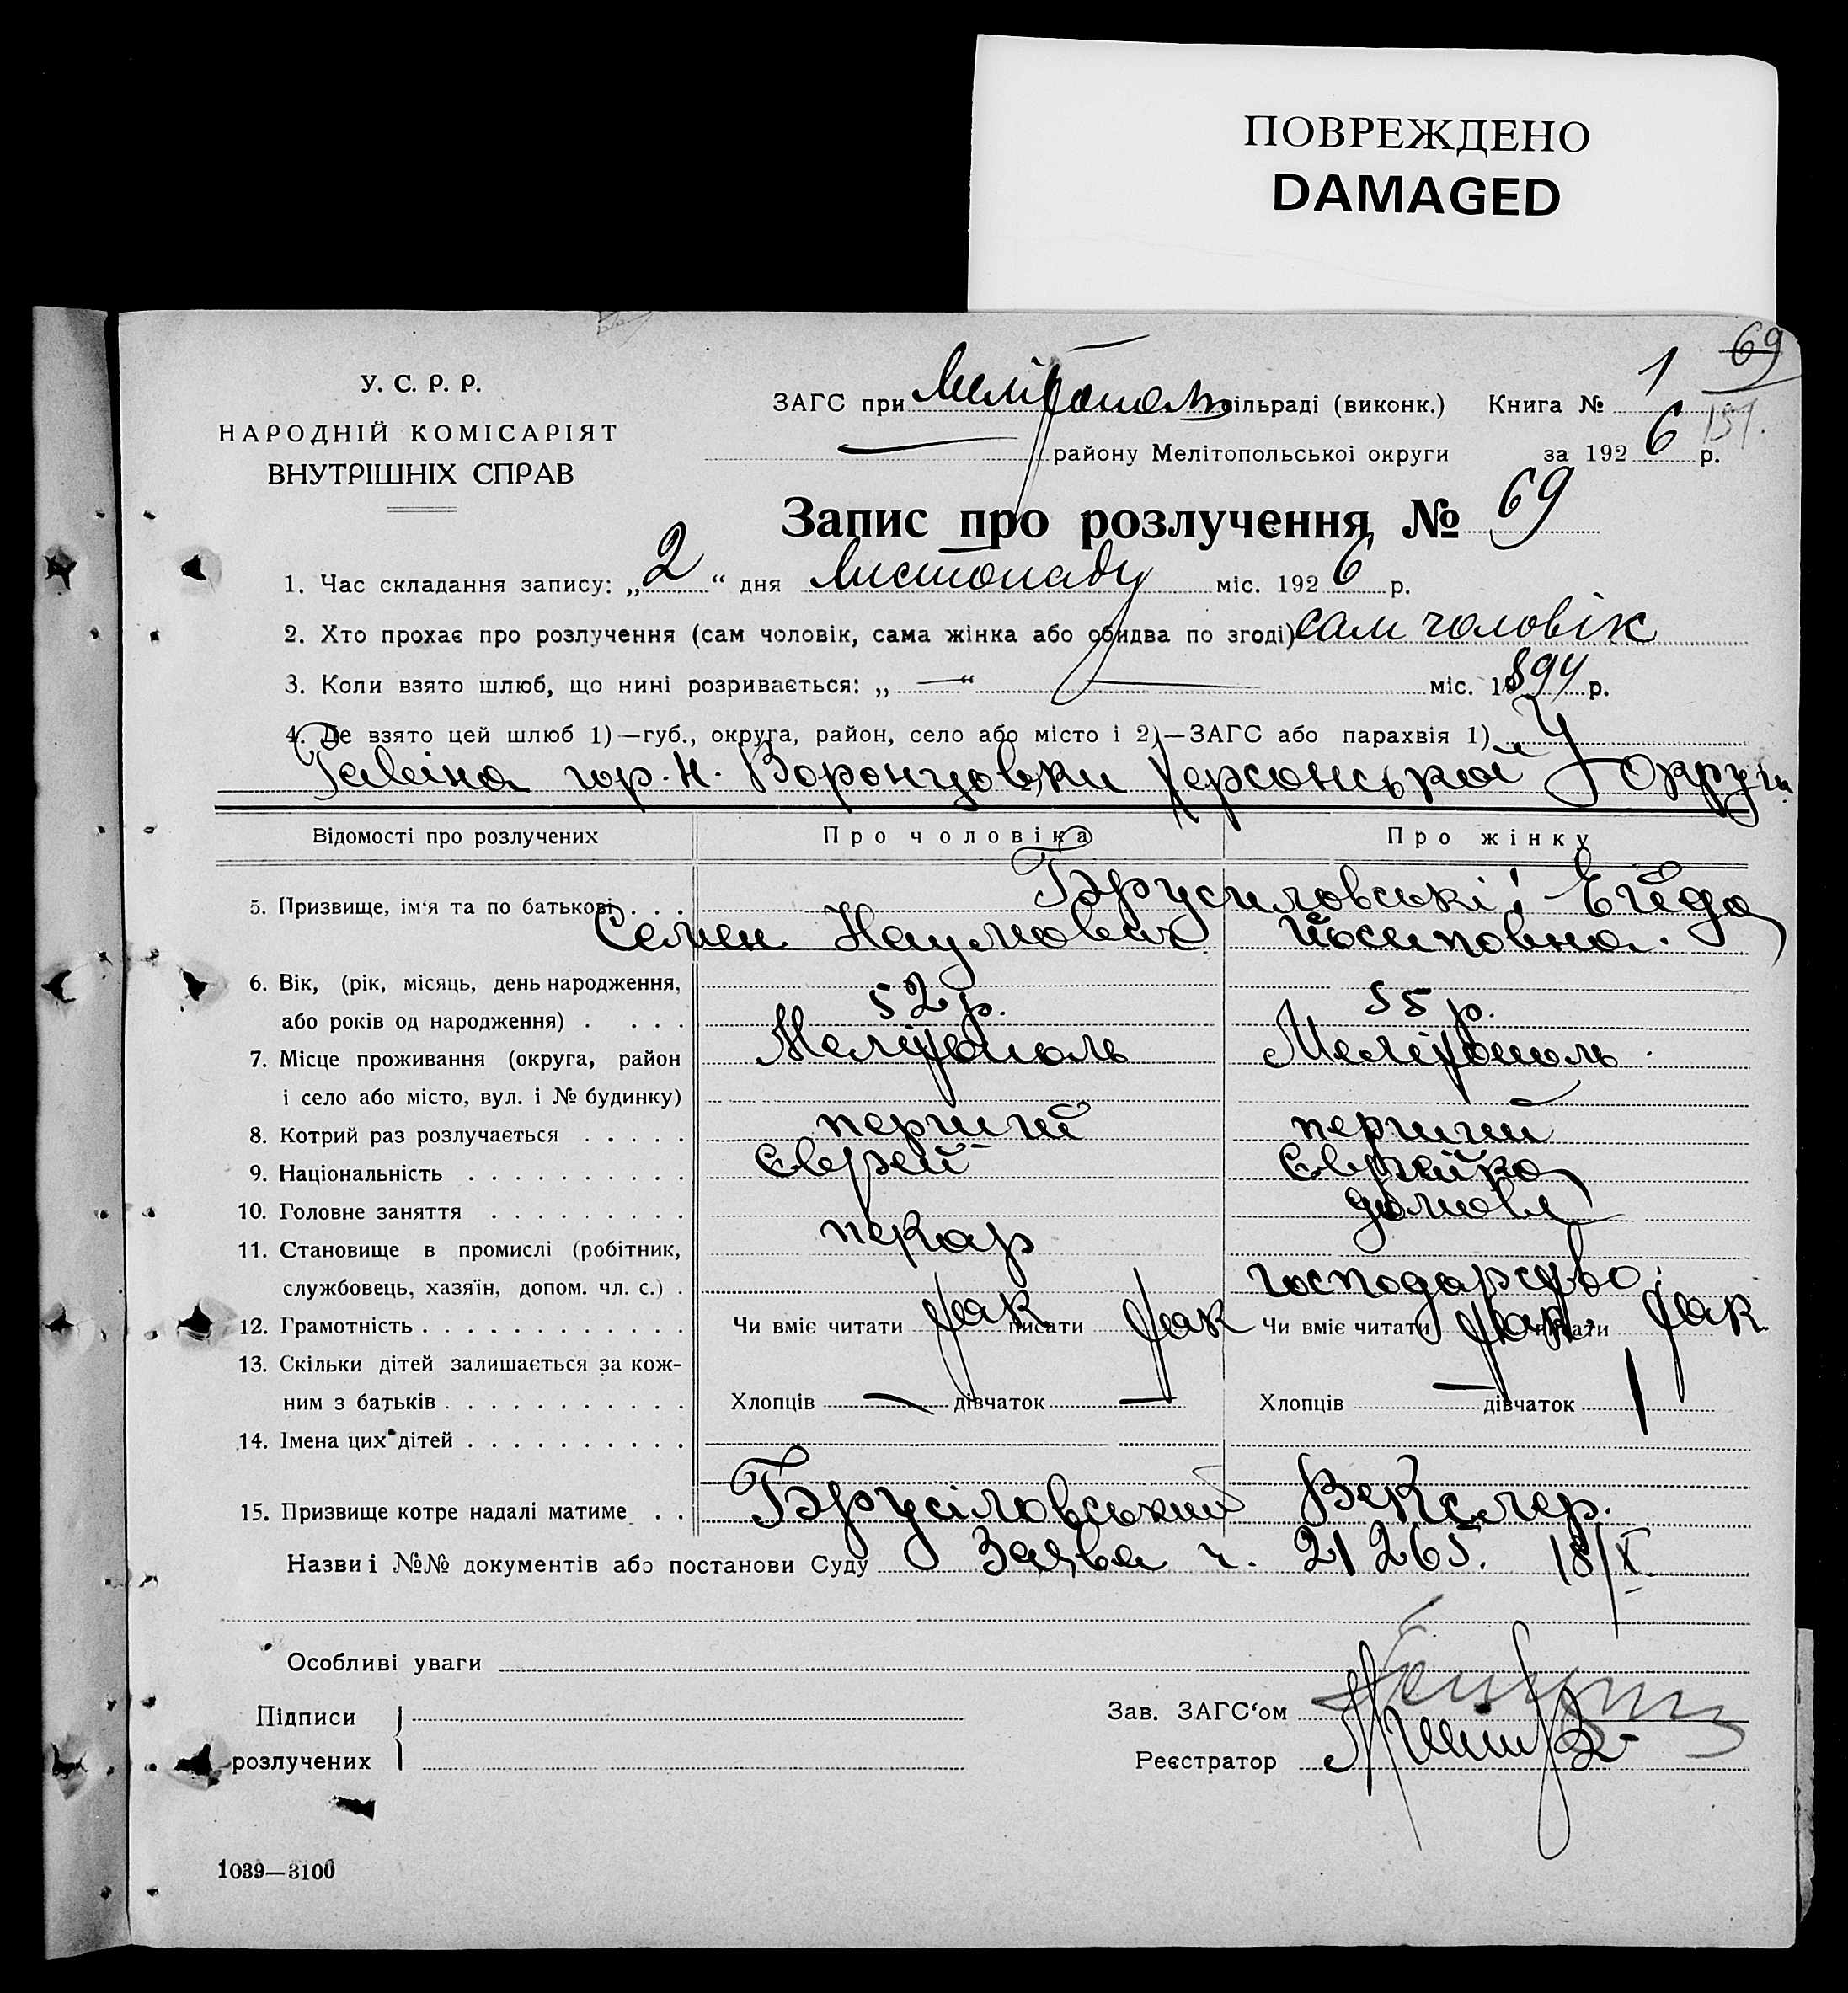 ПОВРЕЖДЕНО
DAMAGED
69
У. С. Р. Р.
НАРОДНІЙ КОМІСАРІЯТ
ВНУТРІШНІХ СПРАВ
ЗАГС при Мелітопол сільраді (виконк.) Книга № 1
151.
району Мелітопольської округи за 1926 р.
Запис про розлучення № 69
1. Час складання запису: „2“ дня Листопаду міс. 1926 р.
2. Хто прохає про розлучення (сам чоловік, сама жінка або обидва по згоді) сам чоловік
3. Коли взято шлюб, що нині розривається: „—“ — міс. 1894 р.
4. Де взято цей шлюб 1)—губ., округа, район, село або місто і 2)—ЗАГС або парахвія 1) У
Равіна гор. Н. Воронцовки Херсонської Округи
Відомості про розлучених Про чоловіка Про жінку
5. Призвище, ім'я та по батькові . . . Брусиловські: Ейда
Семен Наумович Йосиповна.
6. Вік, (рік, місяць, день народження,
або років од народження) . . . . 52 р. 55 р.
7. Місце проживання (округа, район Мелітополь Мелітополь
і село або місто, вул. і № будинку)
8. Котрий раз розлучається . . . . . перший перший
9. Національність . . . . . . . . . . Єврей Єврейка
10. Головне заняття . . . . . . . . . домове
11. Становище в промислі (робітник, пекар
службовець, хазяїн, допом. чл. с.) . господарство
12. Грамотність . . . . . . . . . . . . Чи вміє читати так писати так Чи вміє читати так писати так
13. Скільки дітей залишається за кож-
ним з батьків . . . . . . . . . . . Хлопців — дівчаток — Хлопців — дівчаток 1
14. Імена цих дітей . . . . . . . . . .
15. Призвище котре надалі матиме . . Брусіловський Векслер.
Назви і №№ документів або постанови Суду Заява ч. 21265. 18/X
Особливі уваги
Підписи
розлучених
Зав. ЗАГС'ом
Реєстратор
1039—3100